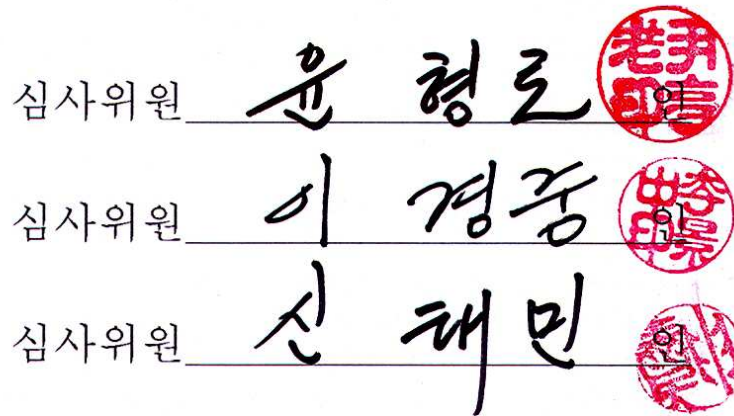 심사위원 윤 형 로 인
심사위원 이 경 중 인
심사위원 신 태 민 인